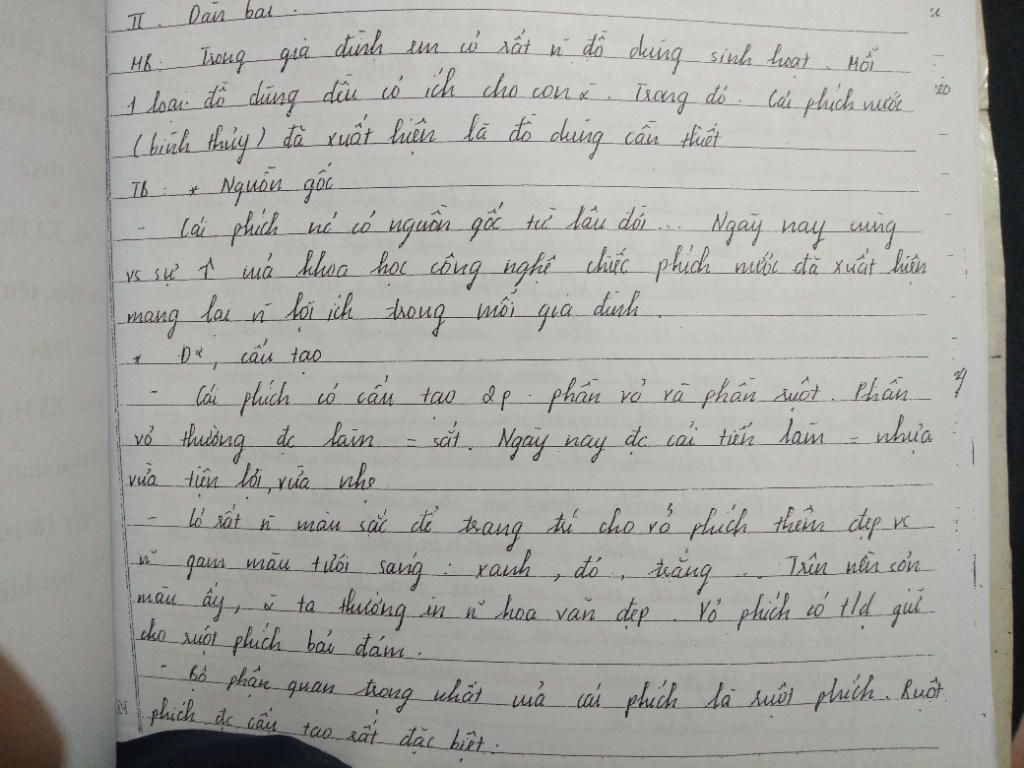 II. Dàn bài.
MB: Trong gia đình em có rất n̄ đồ dùng sinh hoạt. Mỗi
1 loại đồ dùng đều có ích cho con x̄. Trong đó. Cái phích nước
(bình thủy) đã xuất hiện là đồ dùng cần thiết
TB: * Nguồn gốc
- Cái phích nc có nguồn gốc từ lâu đời... Ngày nay cùng
vs sự ↑ của khoa học công nghệ chiếc phích nước đã xuất hiện
mang lại n̄ lợi ích trong mỗi gia đình.
* Đ², cấu tạo
- Cái phích có cấu tạo 2p: phần vỏ và phần ruột. Phần
vỏ thường đc làm = sắt. Ngày nay đc cải tiến làm = nhựa
vừa tiện lợi, vừa nhẹ
- Có rất n̄ màu sắc để trang trí cho vỏ phích thêm đẹp vs
n̄ gam màu tươi sáng: xanh, đỏ, trắng... Trên nền
màu ấy, x̄ ta thường in n̄ hoa văn đẹp. Vỏ phích có t/d giữ
cho ruột phích bảo đảm.
- Bộ phận quan trọng nhất của cái phích là ruột phích. Ruột
phích đc cấu tạo rất đặc biệt.